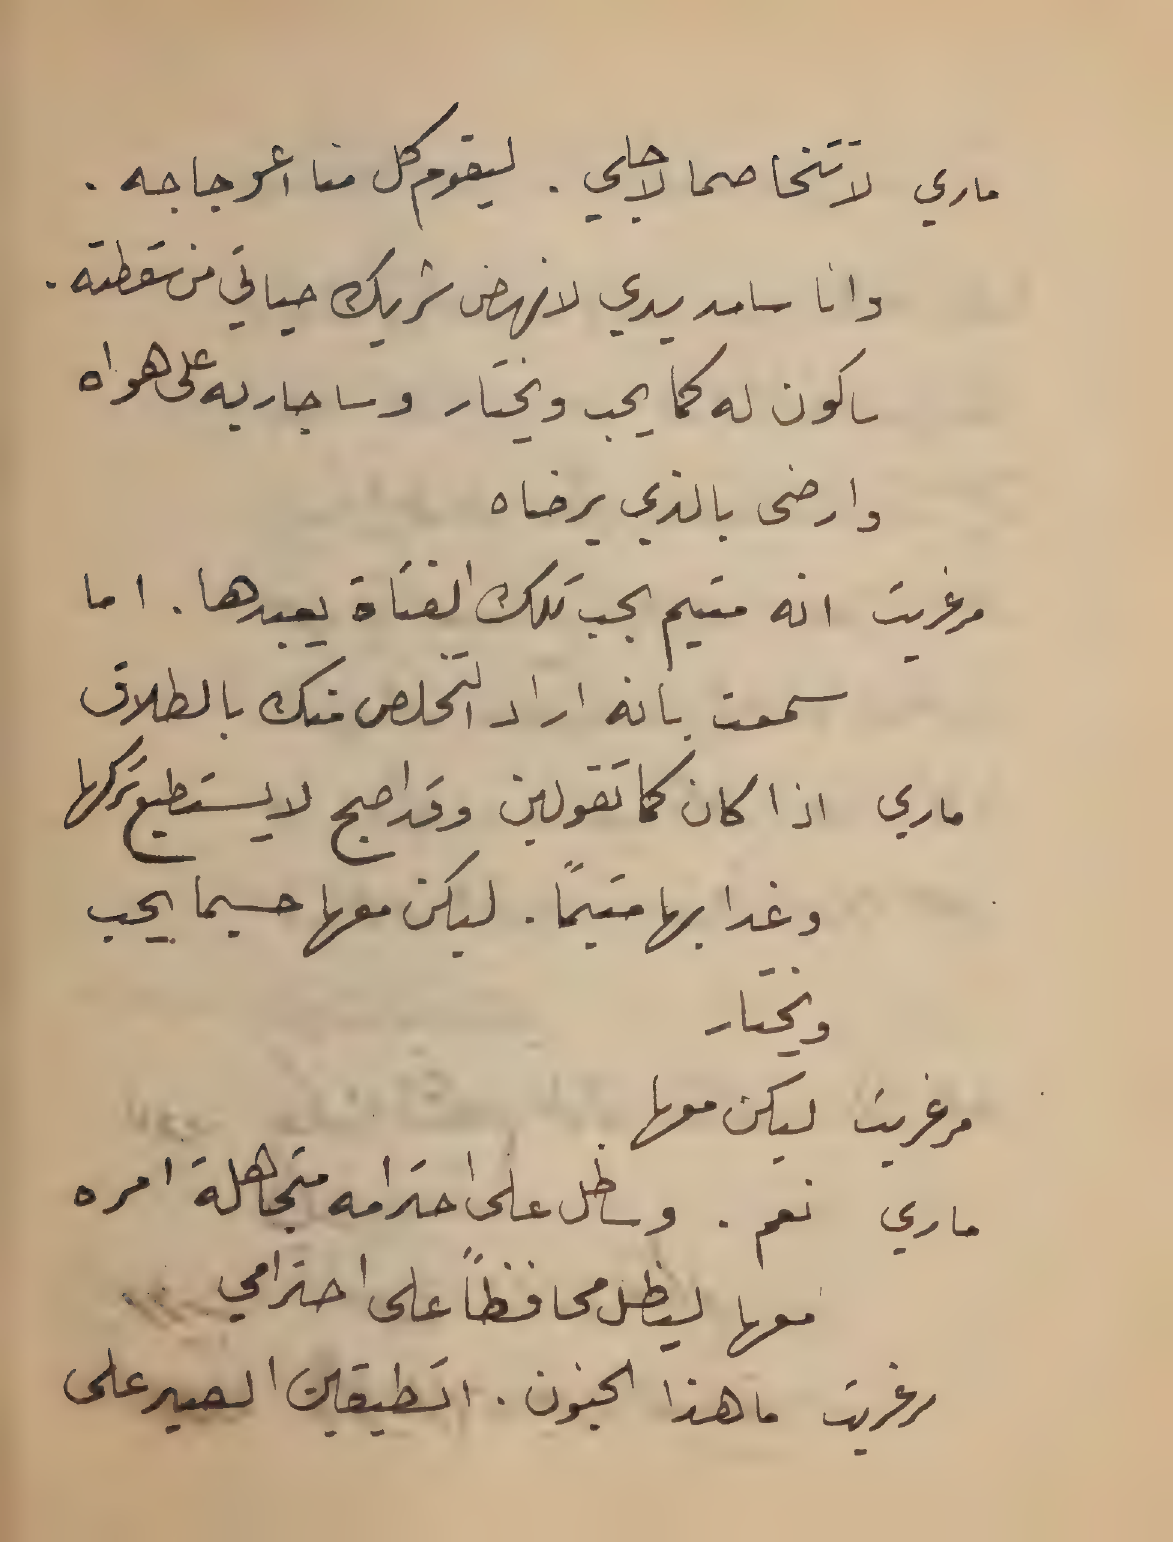 ماري لا تتخاصما لاجلي . ليقوم كل منا اعوجاجه .
وانا سامد يدي لانهض شريك حياتي من سقطته .
ساكون له كما يحب ويختار وساجاريه على هواه
وارضى بالذي يرضاه
مرغريت انه متيم بحب تلك الفتاة يعبدها . اما
سمعت بانه اراد التخلص منك بالطلاق
ماري اذا كان كما تقولين وقد اصبح لا يستطيع تركها
وغدا بها متيمًا . ليكن معها حسبما يحب
ويختار
مرغريت ليكن معها
ماري نعم . وساظل على احترامه متجاهلة امره
معها ليظل محافظاً على احترامي
مرغريت ما هذا الجنون . اتطيقين الصبر على